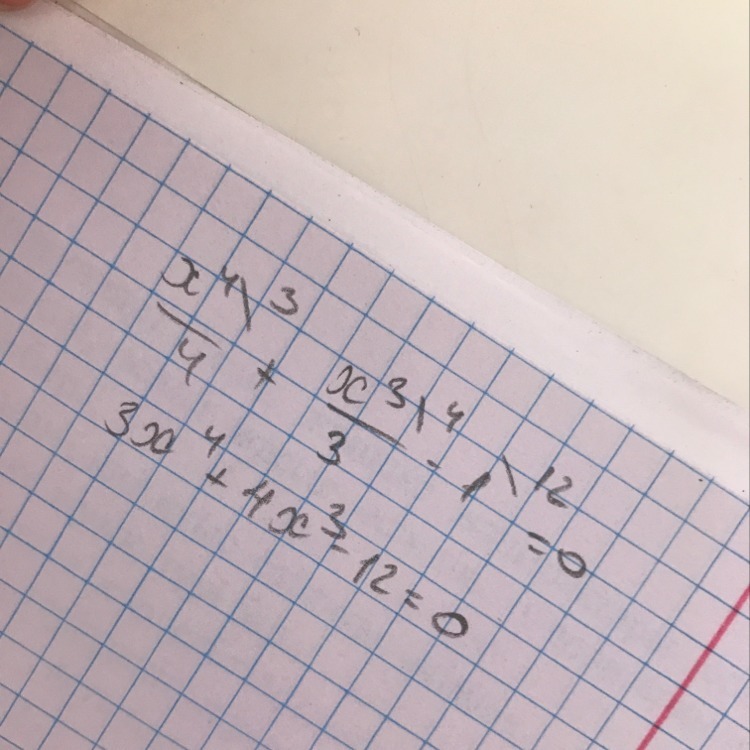 x⁴/4 \3 + x³/3 \4 - 1 \12 = 0
3x⁴ + 4x³ - 12 = 0